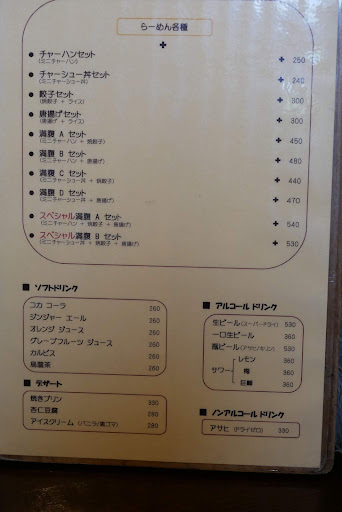 らーめん各種
✚
● チャーハンセット ✚ 250
(ミニチャーハン)
● チャーシュー丼セット ✚ 240
(ミニチャーシュー丼)
● 餃子セット ✚ 300
(焼餃子 + ライス)
● 唐揚げセット ✚ 300
(唐揚げ + ライス)
● 満腹 A セット ✚ 450
(ミニチャーハン + 焼餃子)
● 満腹 B セット ✚ 480
(ミニチャーハン + 唐揚げ)
● 満腹 C セット ✚ 440
(ミニチャーシュー丼 + 焼餃子)
● 満腹 D セット ✚ 470
(ミニチャーシュー丼 + 唐揚げ)
● スペシャル満腹 A セット ✚ 540
(ミニチャーハン + 焼餃子 + 唐揚げ)
● スペシャル満腹 B セット ✚ 530
(ミニチャーシュー丼 + 焼餃子 + 唐揚げ)
■ ソフトドリンク
コカ コーラ 260
ジンジャー エール 260
オレンジ ジュース 260
グレープフルーツ ジュース 260
カルピス 260
烏龍茶 260
■ デザート
焼きプリン 300
杏仁豆腐 280
アイスクリーム (バニラ/黒ゴマ) 280
■ アルコール ドリンク
生ビール(スーパードライ) 530
一口生ビール 360
瓶ビール(アサヒ/キリン) 530
レモン 360
サワー 梅 360
巨峰 360
■ ノンアルコール ドリンク
アサヒ (ドライゼロ) 390